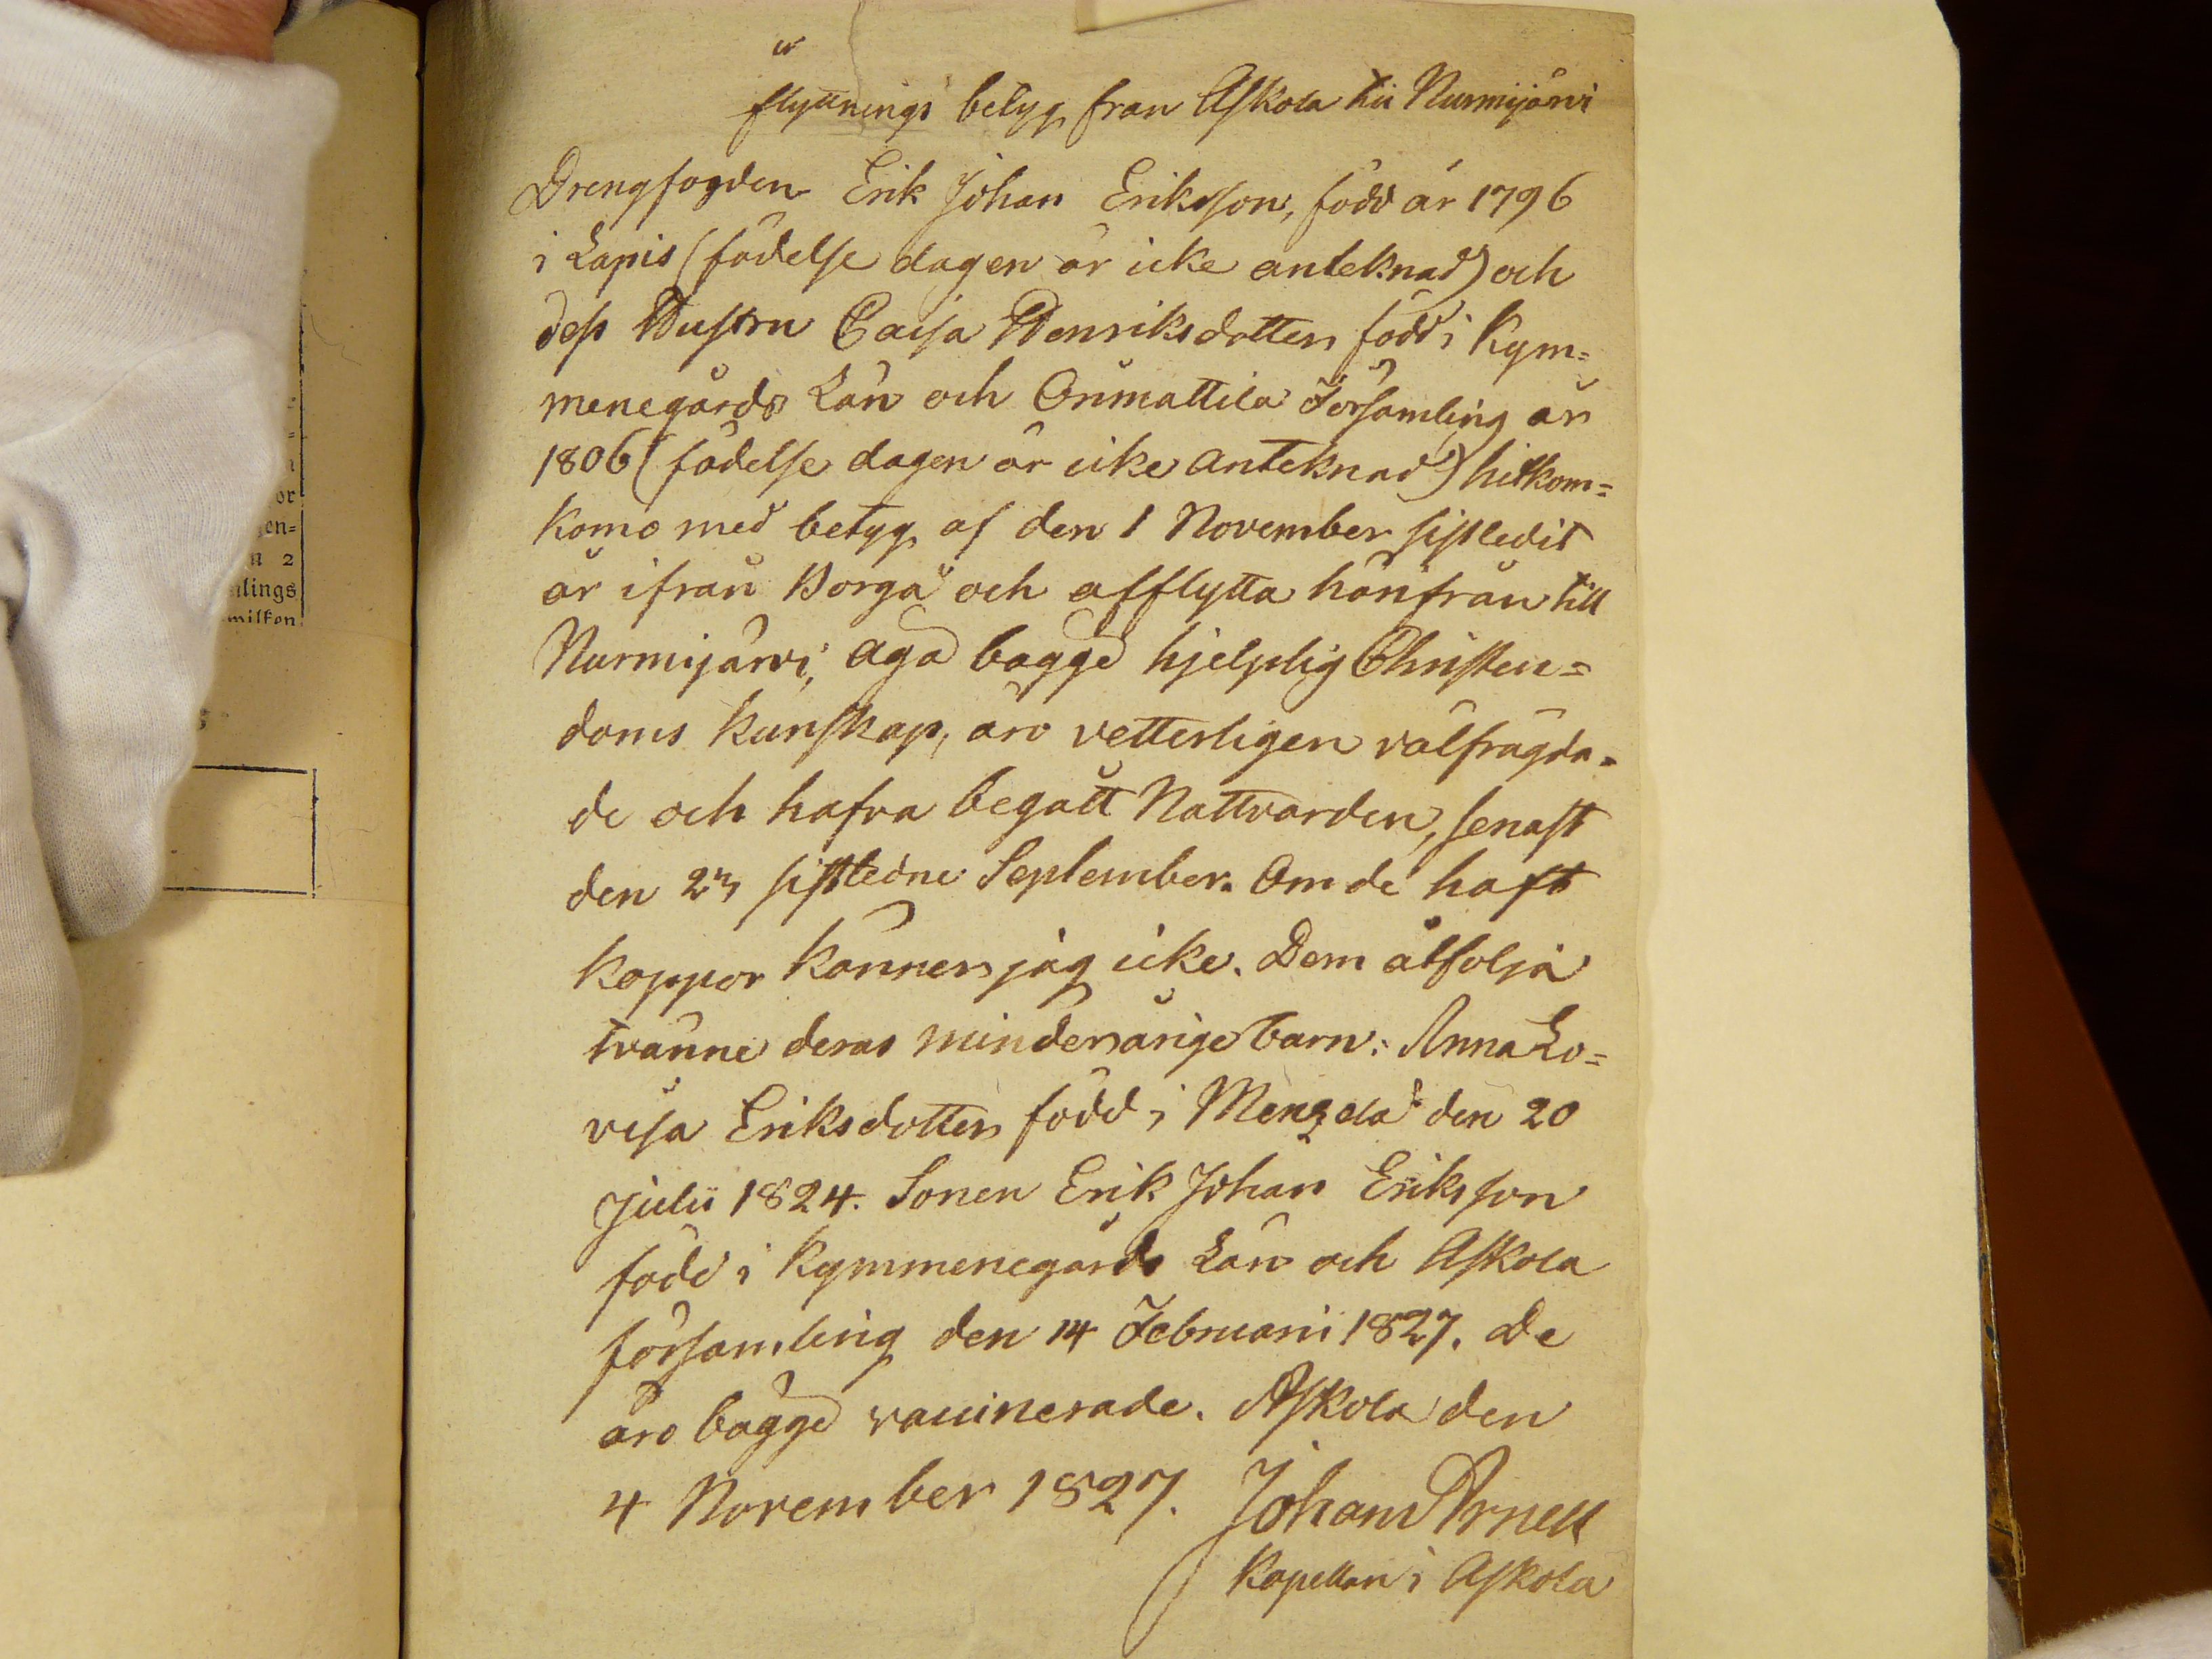 flyttnings betyg från Askola till Nurmijärvi
Drengfogden Erik Johan Eriksson, född år 1796
i Lapis (födelse dagen är icke anteknad) och
dess Hustru Caisa Henriksdotter född i Kym=
menegårds Län och Orimattila Församling år
1806 (födelse dagen är icke anteknad) hitkom=
komo med betyg af den 1 November sistledit
år ifrån Borgå och afflytta hänifrån till
Nurmijärvi, äga bägge hjelplig Christen=
doms kunskap, äro vetterligen välfrägda=
de och hafva begått Nattvarden, senast
den 23 sistledne September. Om de haft
koppor känner jag icke. Dem åtfölja
tvänne deras minderårige barn: Anna Lo=
visa Eriksdotter född i den 20
Julii 1824. Sonen Erik Johan Eriksson
född i Kymmenegårds Län och Askola
församling den 14 Februarii 1827. De
äro bägge vaccinerade. Askola den
4 November 1827. Johan Arnell
Kapellan i Askola
or
en=
n 2
lings